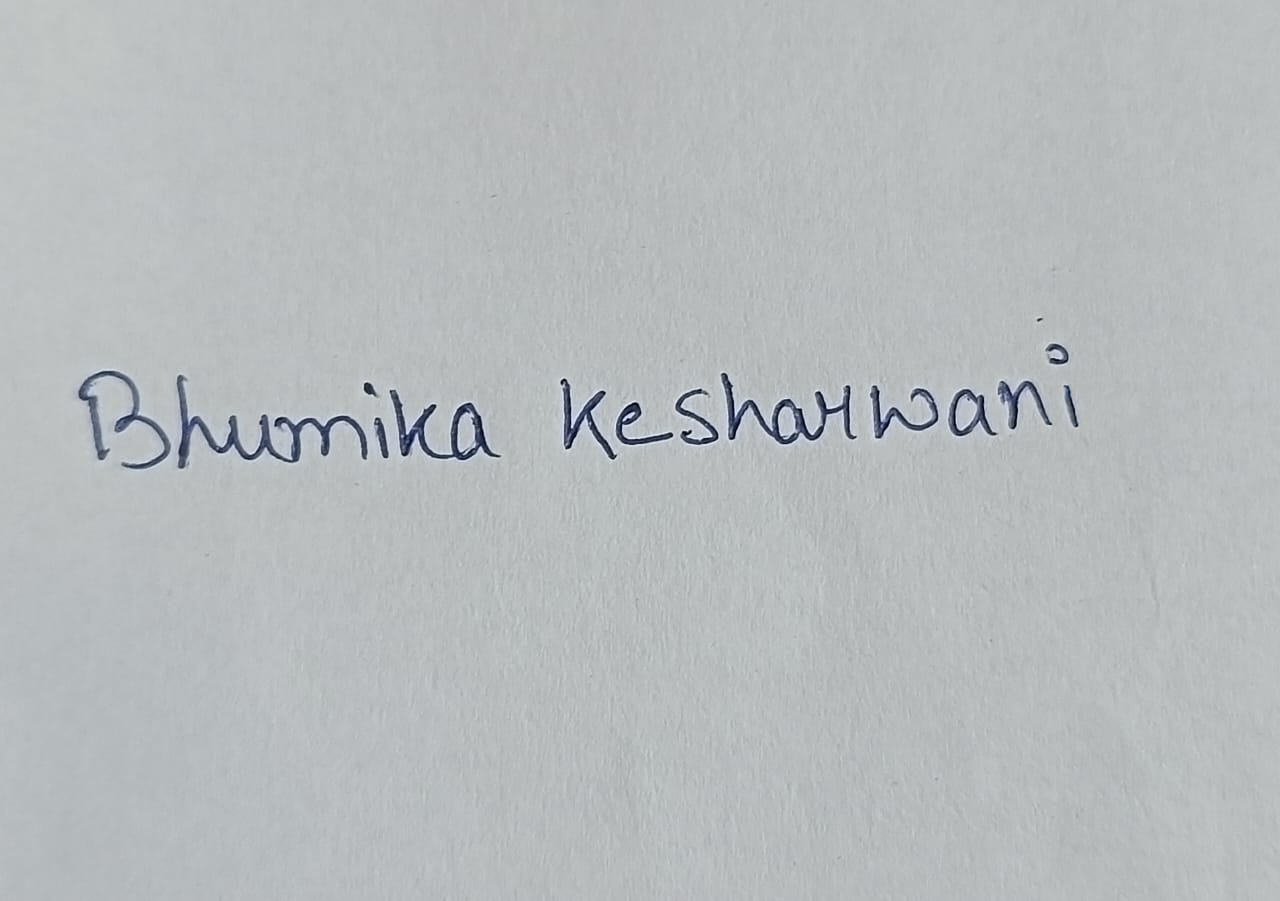 Bhumika Kesharwani